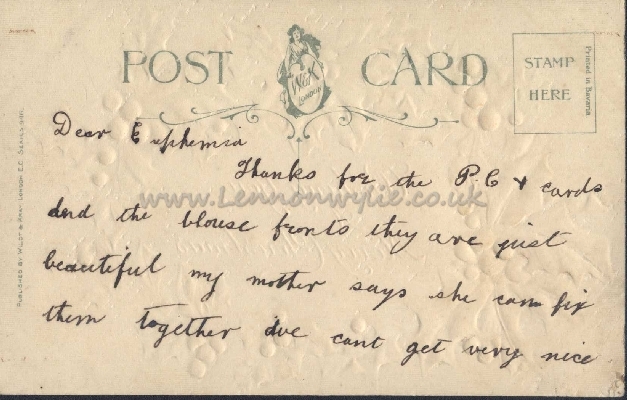 POST CARD
W&K
LONDON
STAMP
HERE
Printed in Bavaria
PUBLISHED BY WILDT & KRAY. LONDON. E.C. SERIES
Dear Euphemia
Thanks for the P.C & cards
and the blouse fronts they are just
beautiful my mother says she can fix
them together we cant get very nice
www.Lennonwylie.co.uk